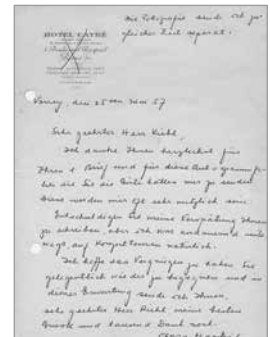 Die Fotografie sende ich zu
gleicher Zeit separat.
HOTEL CAYRÉ
4, Boulevard Raspail
Vevey, den 25ten Mai 57
Sehr geehrter Herr Riehl,
Ich danke Ihnen herzlichst für
Ihren Brief und für diese
bei die Sie die Güte hatten mir zu senden
Diese werden mir oft sehr nützlich sein.
Entschuldigen Sie meine Verspätung Ihnen
zu schreiben, aber ich war andauernd unter-
wegs, auf Konzertreisen natürlich.
Ich hoffe das Vergnügen zu haben Sie
gelegentlich wieder zu begegnen und in
dieser Erwartung sende ich Ihnen,
sehr geehrter Herr Riehl meine besten
Grüsse und tausend Dank noch.
Clara Haskil